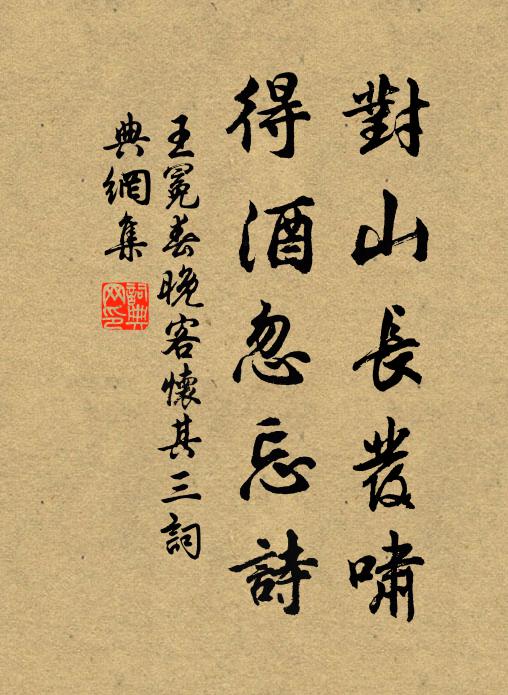 對山長發嘯
得酒忽忘詩
王冕春晚客懷其三詞
典網集
詞典網印